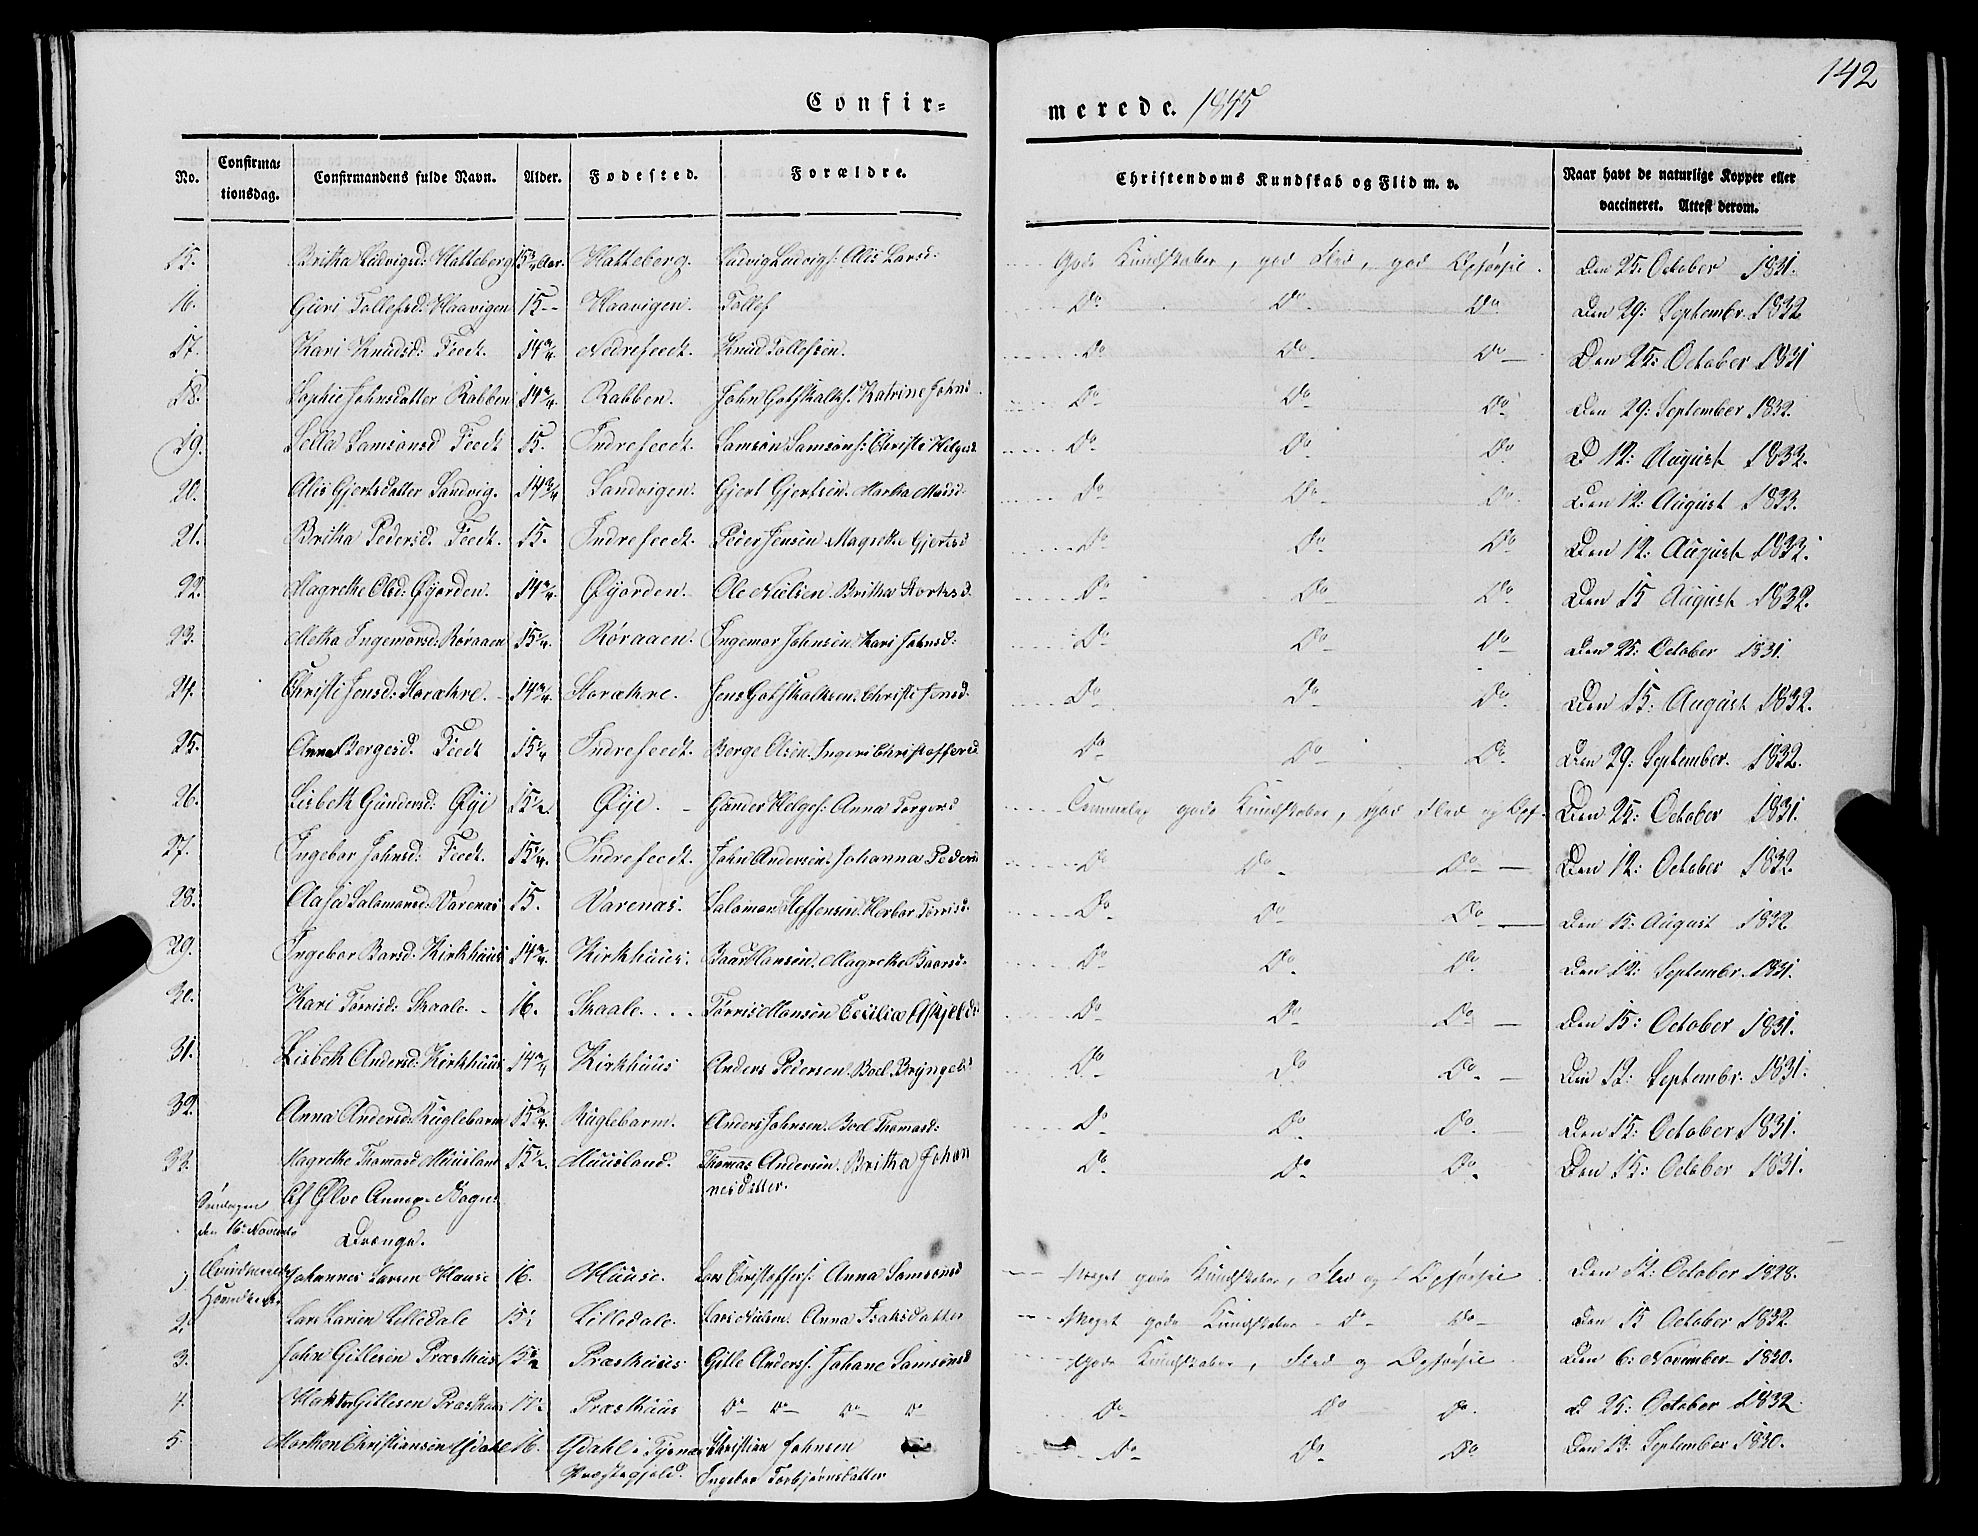 142
Confir= merede. 1845
No. Confirma= tionsdag. Confirmandens fulde Navn. Alder. Fodested. Forældre. Christendoms Kundskab og Flid m. v. Naar havt de naturlige Kopper eller vaccineret. Attest derom.
15. Britha Ludvigsd: Hatteberg 15 3/4 Aar. Hatteberg. Ludvig Ludvigs: Alis Larsd: Gode Kundskaber, god Flid, god Opførsel. Den 25: October 1831.
16. Guri Tollefsd: Haavigen 15 -- Haavigen. Tollef Do Do Do Den 29: Septembr. 1832
17. Kari Knudsd: Feedt. 14 3/4. Nedrefeedt. Knud Tollefsen. Do Do Do Den 25: October 1831
18. Sophie Johnsdatter Rabben 14 3/4. Rabben. John Gotskalks. Katrine Johns Do Do Do Den 29: September 1832.
19. Sella Samsonsd Feedt 15. Indrefeedt. Samson Samsons: Christi Helgesd Do Do Do D 12: August 1832.
20. Alis Gjertsdatter Sandvig. 14 3/4 Sandvigen. Gjert Gjertsen. Martha Madsd. Do Do Do Den 12: August 1833.
21. Britha Pedersd. Feedt. 15. Indrefeedt. Peder Jensen. Magrethe Gjertsd Do Do Do Den 12: August 1832.
22. Magrethe Olsd: Øyjorden. 14 3/4. Øyjorden. Ole Nielsen. Britha Do Do Do Den 15 August 1832.
23. Metha Ingemarsd: Røraaen 15 1/4. Røraaen. Ingemar Johnsen. Kari Johnsd: Do Do Do Den 25: October 1831.
24. Christi Jensd: Storæhre. 14 3/4. Storæhre. Jens Gotskalksen. Christi Jensd. Do Do Do Den 15: August 1832.
25. Anna Bergesd. Feedt 15 1/4 Indrefeedt. Berge Olsen. Ingeri Christoffersd Do Do Do Den 29: September. 1832.
26. Lisbeth Gundersd: Øye 15 1/2. Øye. Gunder Helges: Anna Torgersd Temmelig gode Kundskaber, god Flid og Opf. Den 25: October 1831.
27. Ingebor Johnsd: Feedt. 15 1/4. Indrefeedt. John Andersen. Johanna Pedersd Do Do Do Den 12: October 1832.
28. Olasa Salamonsd: Varenas 15. Varenas. Salamon Steffensen. Herbor Tørrisd. Do Do Do Den 15: August 1832.
29. Ingebor Barsd: Kirkhuus 14 3/4. Kirkhuus. Baar Hansen. Magrethe Baarsd. Do Do Do Den 12: Septembr. 1831.
30. Kari Tørrisd: Skaale. 16. Skaale. Tørris Monsen Cecilia Askjelds Do Do Do Den 15: October 1831.
31. Lisbeth Andersd: Kirkhuus 14 3/4 Kirkhuus Anders Pedersen. Boel Bryngels Do Do Do Den 12: Septembr. 1831.
32. Anna Andersd: Kuglebarm 15 3/4. Kuglebarm. Anders Johnsen. Boel Thomasd: Do Do Do Den 15: October 1831.
33. Magrethe Thomasd Muusland 15 1/2. Muusland. Thomas Andersen. Britha Johan Do Do Do Den 15: October 1831.
nesdatter.
Søndagen den 16: Novembr
Af Ølve Annex Sogn
Drænge.
1. Johannes Larsen Hause 16. Hause. Lars Christoffers: Anna Samsonsd Meget gode Kundskaber, Flid og Opførsel Den 12: October 1828.
2. Lars Larsen Lilledale 15 Lilledale. Lars Nielsen. Anna Isaksdatter Meget gode Kundskaber Do Do Den 15 October 1832.
3. John Gitlesen Præsthuus 15 1/2 Præsthuus. Gitle Anders: Johane Samsonsd Gode Kundskaber, Flid og Opførsel Den 6: November 1830.
4. Gitlesen Præsthuus 17 Præsthuus Do Do Do Do Do Do Do d 25: October 1832.
5. Morthen Christiansen Ysdahl 16. Ysdahl i Tysnæs Christian Johnsen Do Do Do Den 13: September 1830.
Præstegjeld. Ingebor Torbjørnsdatter